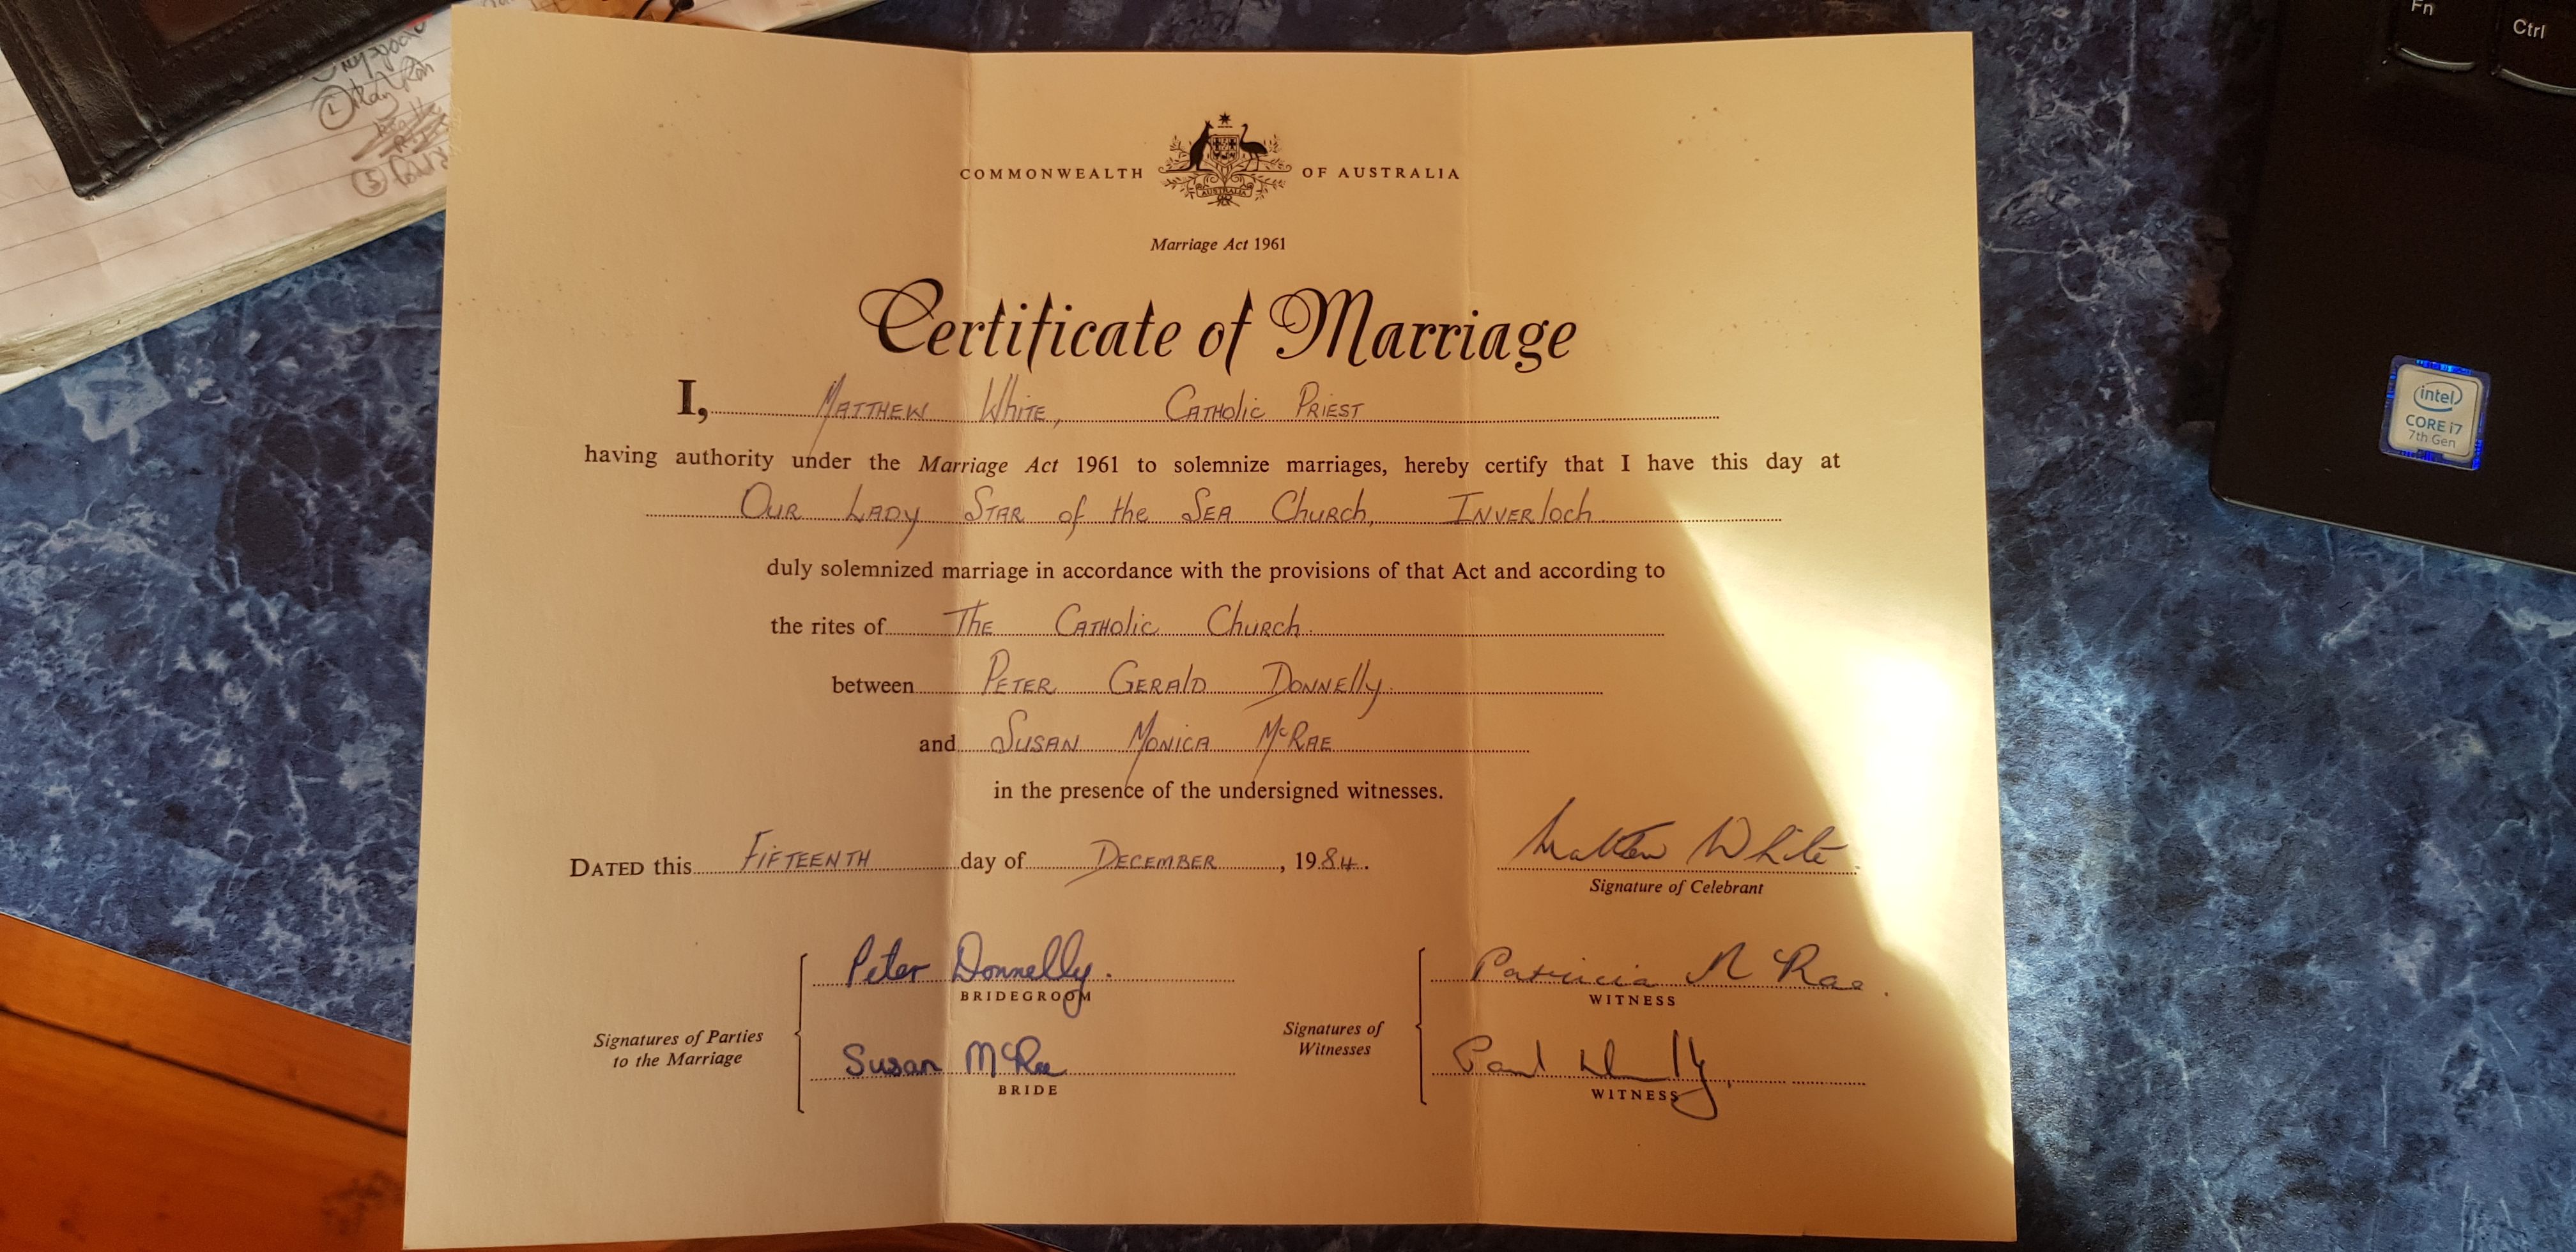 COMMONWEALTH OF AUSTRALIA
AUSTRALIA
Marriage Act 1961
Certificate of Marriage
I, MATTHEW WHITE, CATHOLIC PRIEST
having authority under the Marriage Act 1961 to solemnize marriages, hereby certify that I have this day at
OUR LADY STAR of the SEA CHURCH, INVERLOCH
duly solemnized marriage in accordance with the provisions of that Act and according to
the rites of The CATHOLIC CHURCH
between PETER GERALD DONNELLY
and SUSAN MONICA McRAE
in the presence of the undersigned witnesses.
DATED this FIFTEENTH day of DECEMBER, 1984.
Matthew White
Signature of Celebrant
Signatures of Parties
to the Marriage
Peter Donnelly.
BRIDEGROOM
Susan McRae
BRIDE
Signatures of
Witnesses
Patricia McRae.
WITNESS
Paul Donnelly
WITNESS
intel
CORE i7
7th Gen
Fn
Ctrl